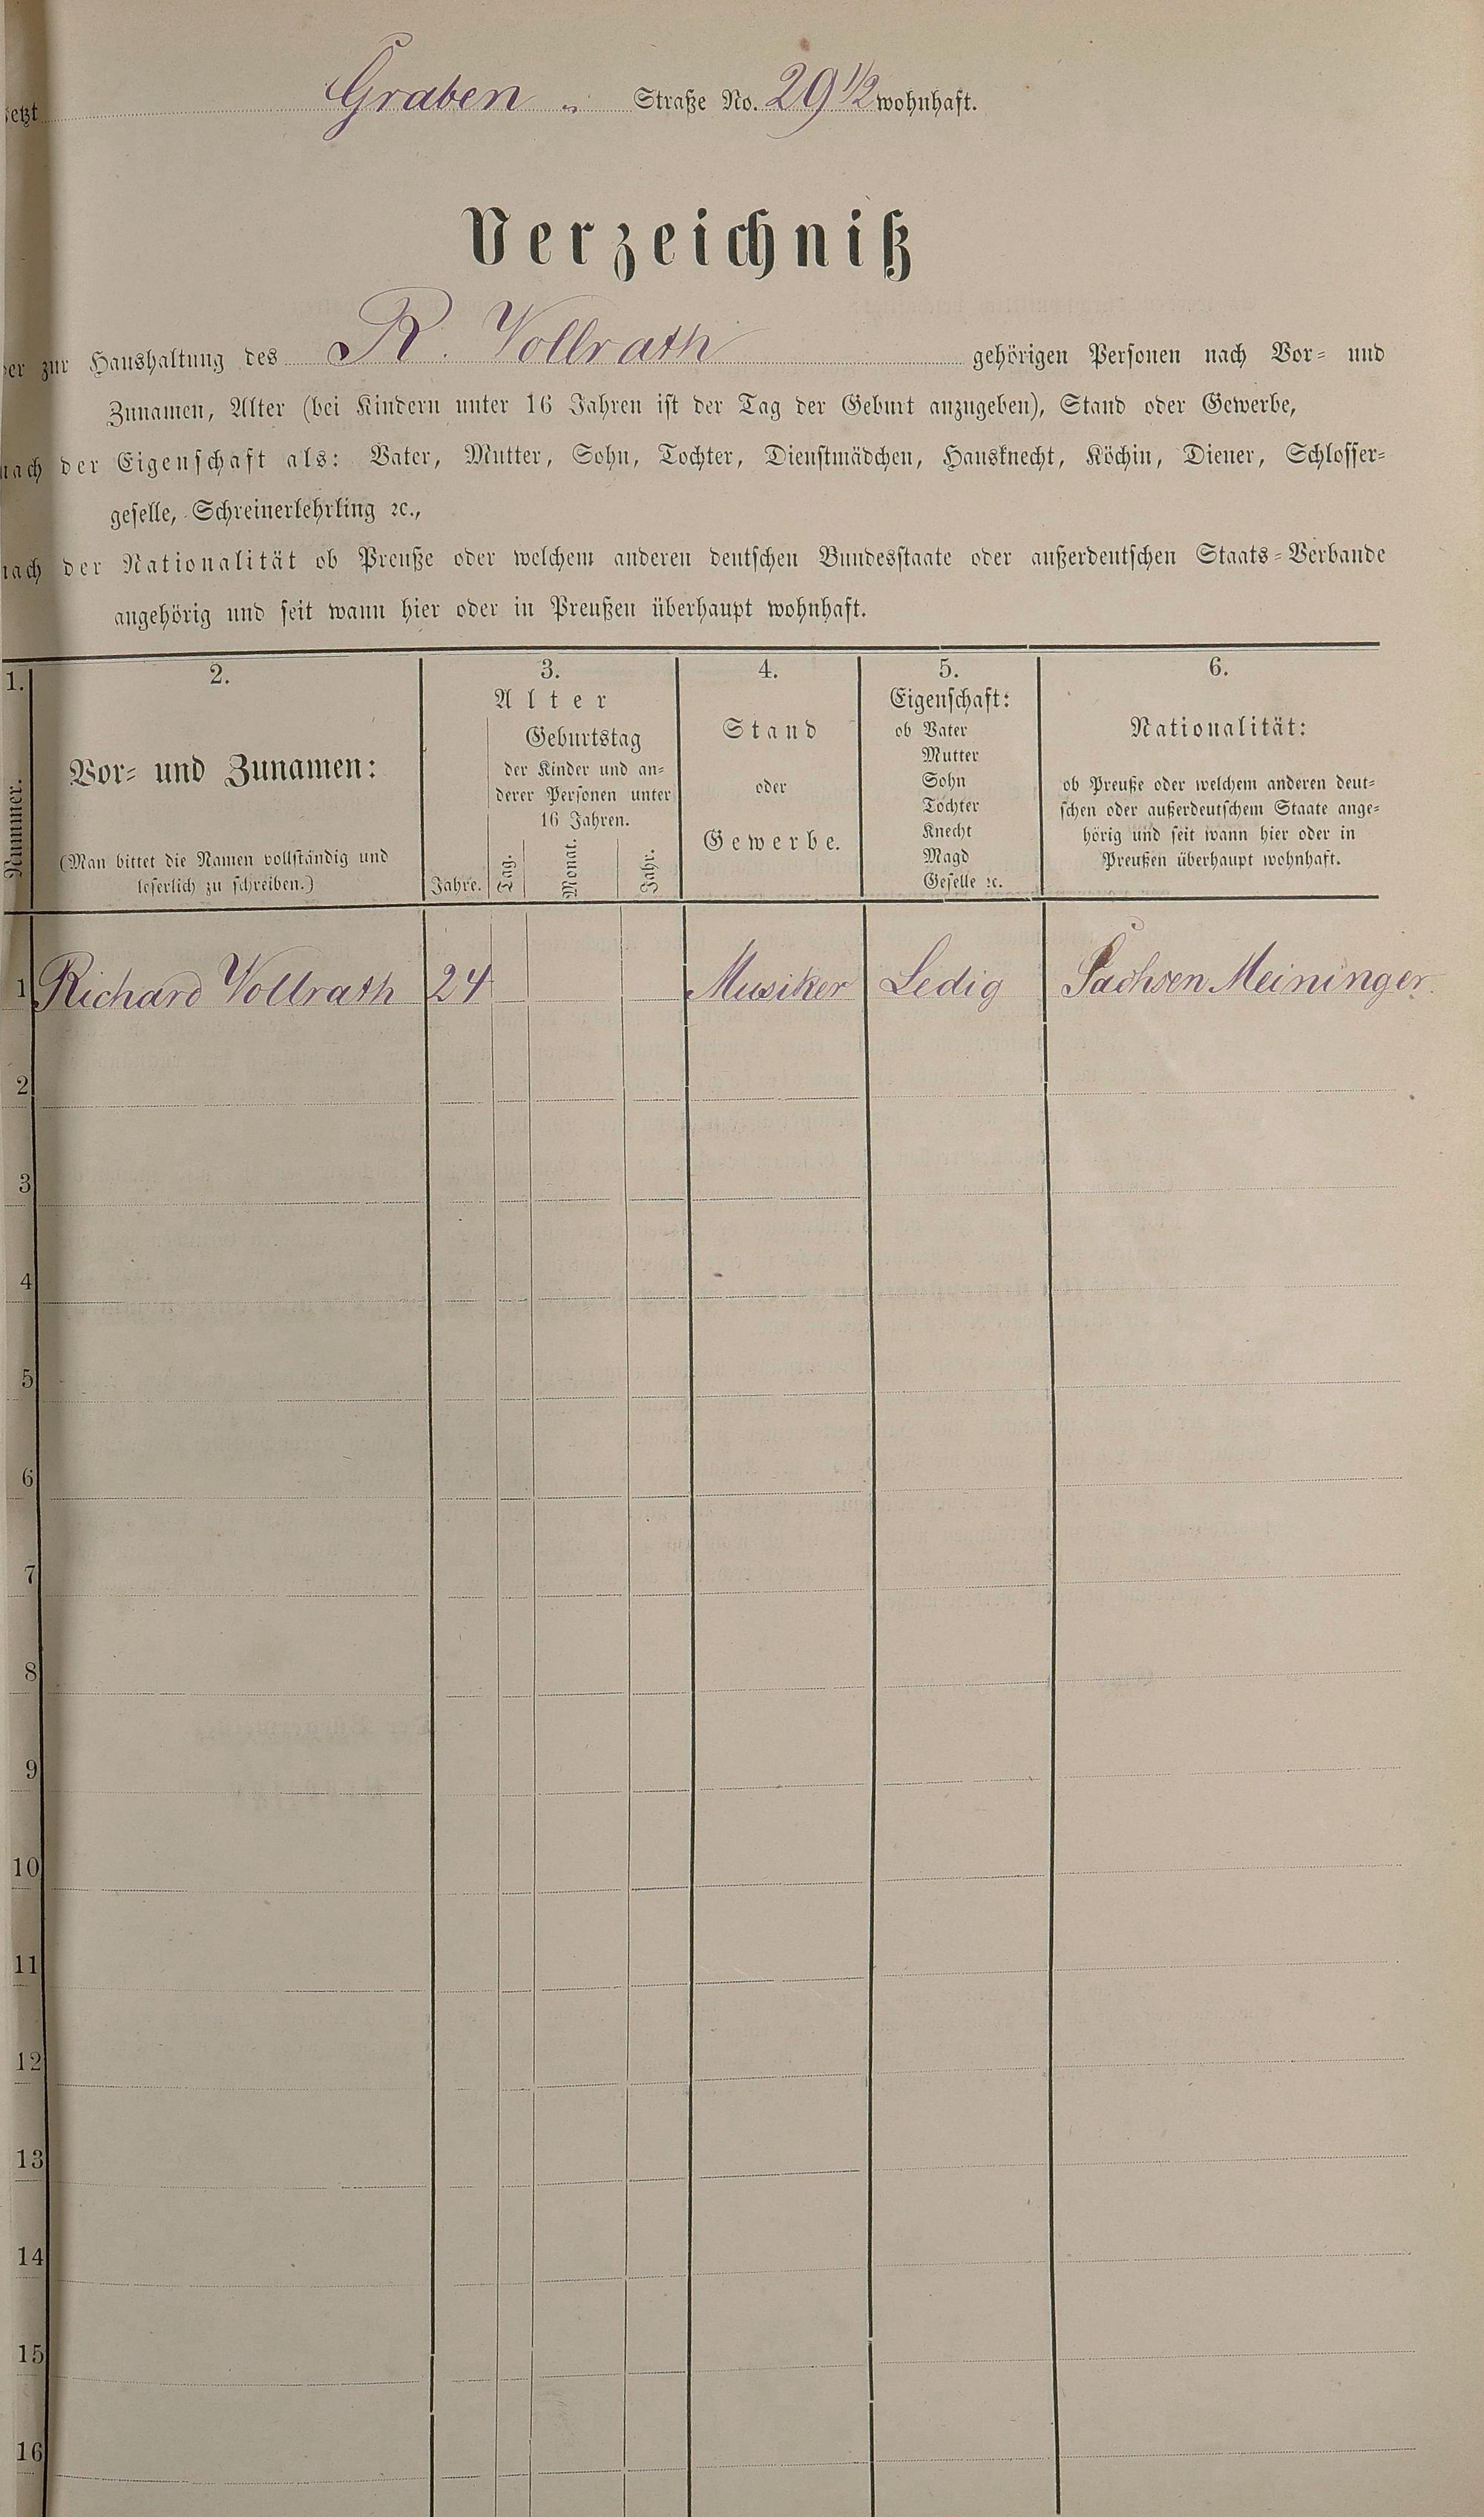 jetzt Graben - Straße No. 29 1/2 wohnhaft.
Verzeichniß
der zur Haushaltung des R. Vollrath gehörigen Personen nach Vor- und
Zunamen, Alter (bei Kindern unter 16 Jahren ist der Tag der Geburt anzugeben), Stand oder Gewerbe,
nach der Eigenschaft als: Vater, Mutter, Sohn, Tochter, Dienstmädchen, Hausknecht, Köchin, Diener, Schlosser-
geselle, Schreinerlehrling ꝛc.,
nach der Nationalität ob Preuße oder welchem anderen deutschen Bundesstaate oder außerdeutschen Staats-Verbande
angehörig und seit wann hier oder in Preußen überhaupt wohnhaft.
1.
Nummer.
2.
Vor- und Zunamen:
(Man bittet die Namen vollständig und
leserlich zu schreiben.)
3.
Alter
Jahre.
Geburtstag
der Kinder und an-
derer Personen unter
16 Jahren.
Tag.
Monat.
Jahr.
4.
Stand
oder
Gewerbe.
5.
Eigenschaft:
ob Vater
Mutter
Sohn
Tochter
Knecht
Magd
Geselle ꝛc.
6.
Nationalität:
ob Preuße oder welchem anderen deut-
schen oder außerdeutschem Staate ange-
hörig und seit wann hier oder in
Preußen überhaupt wohnhaft.
1 Richard Vollrath 24 Musiker Ledig Sachsen Meininger.
2
3
4
5
6
7
8
9
10
11
12
13
14
15
16